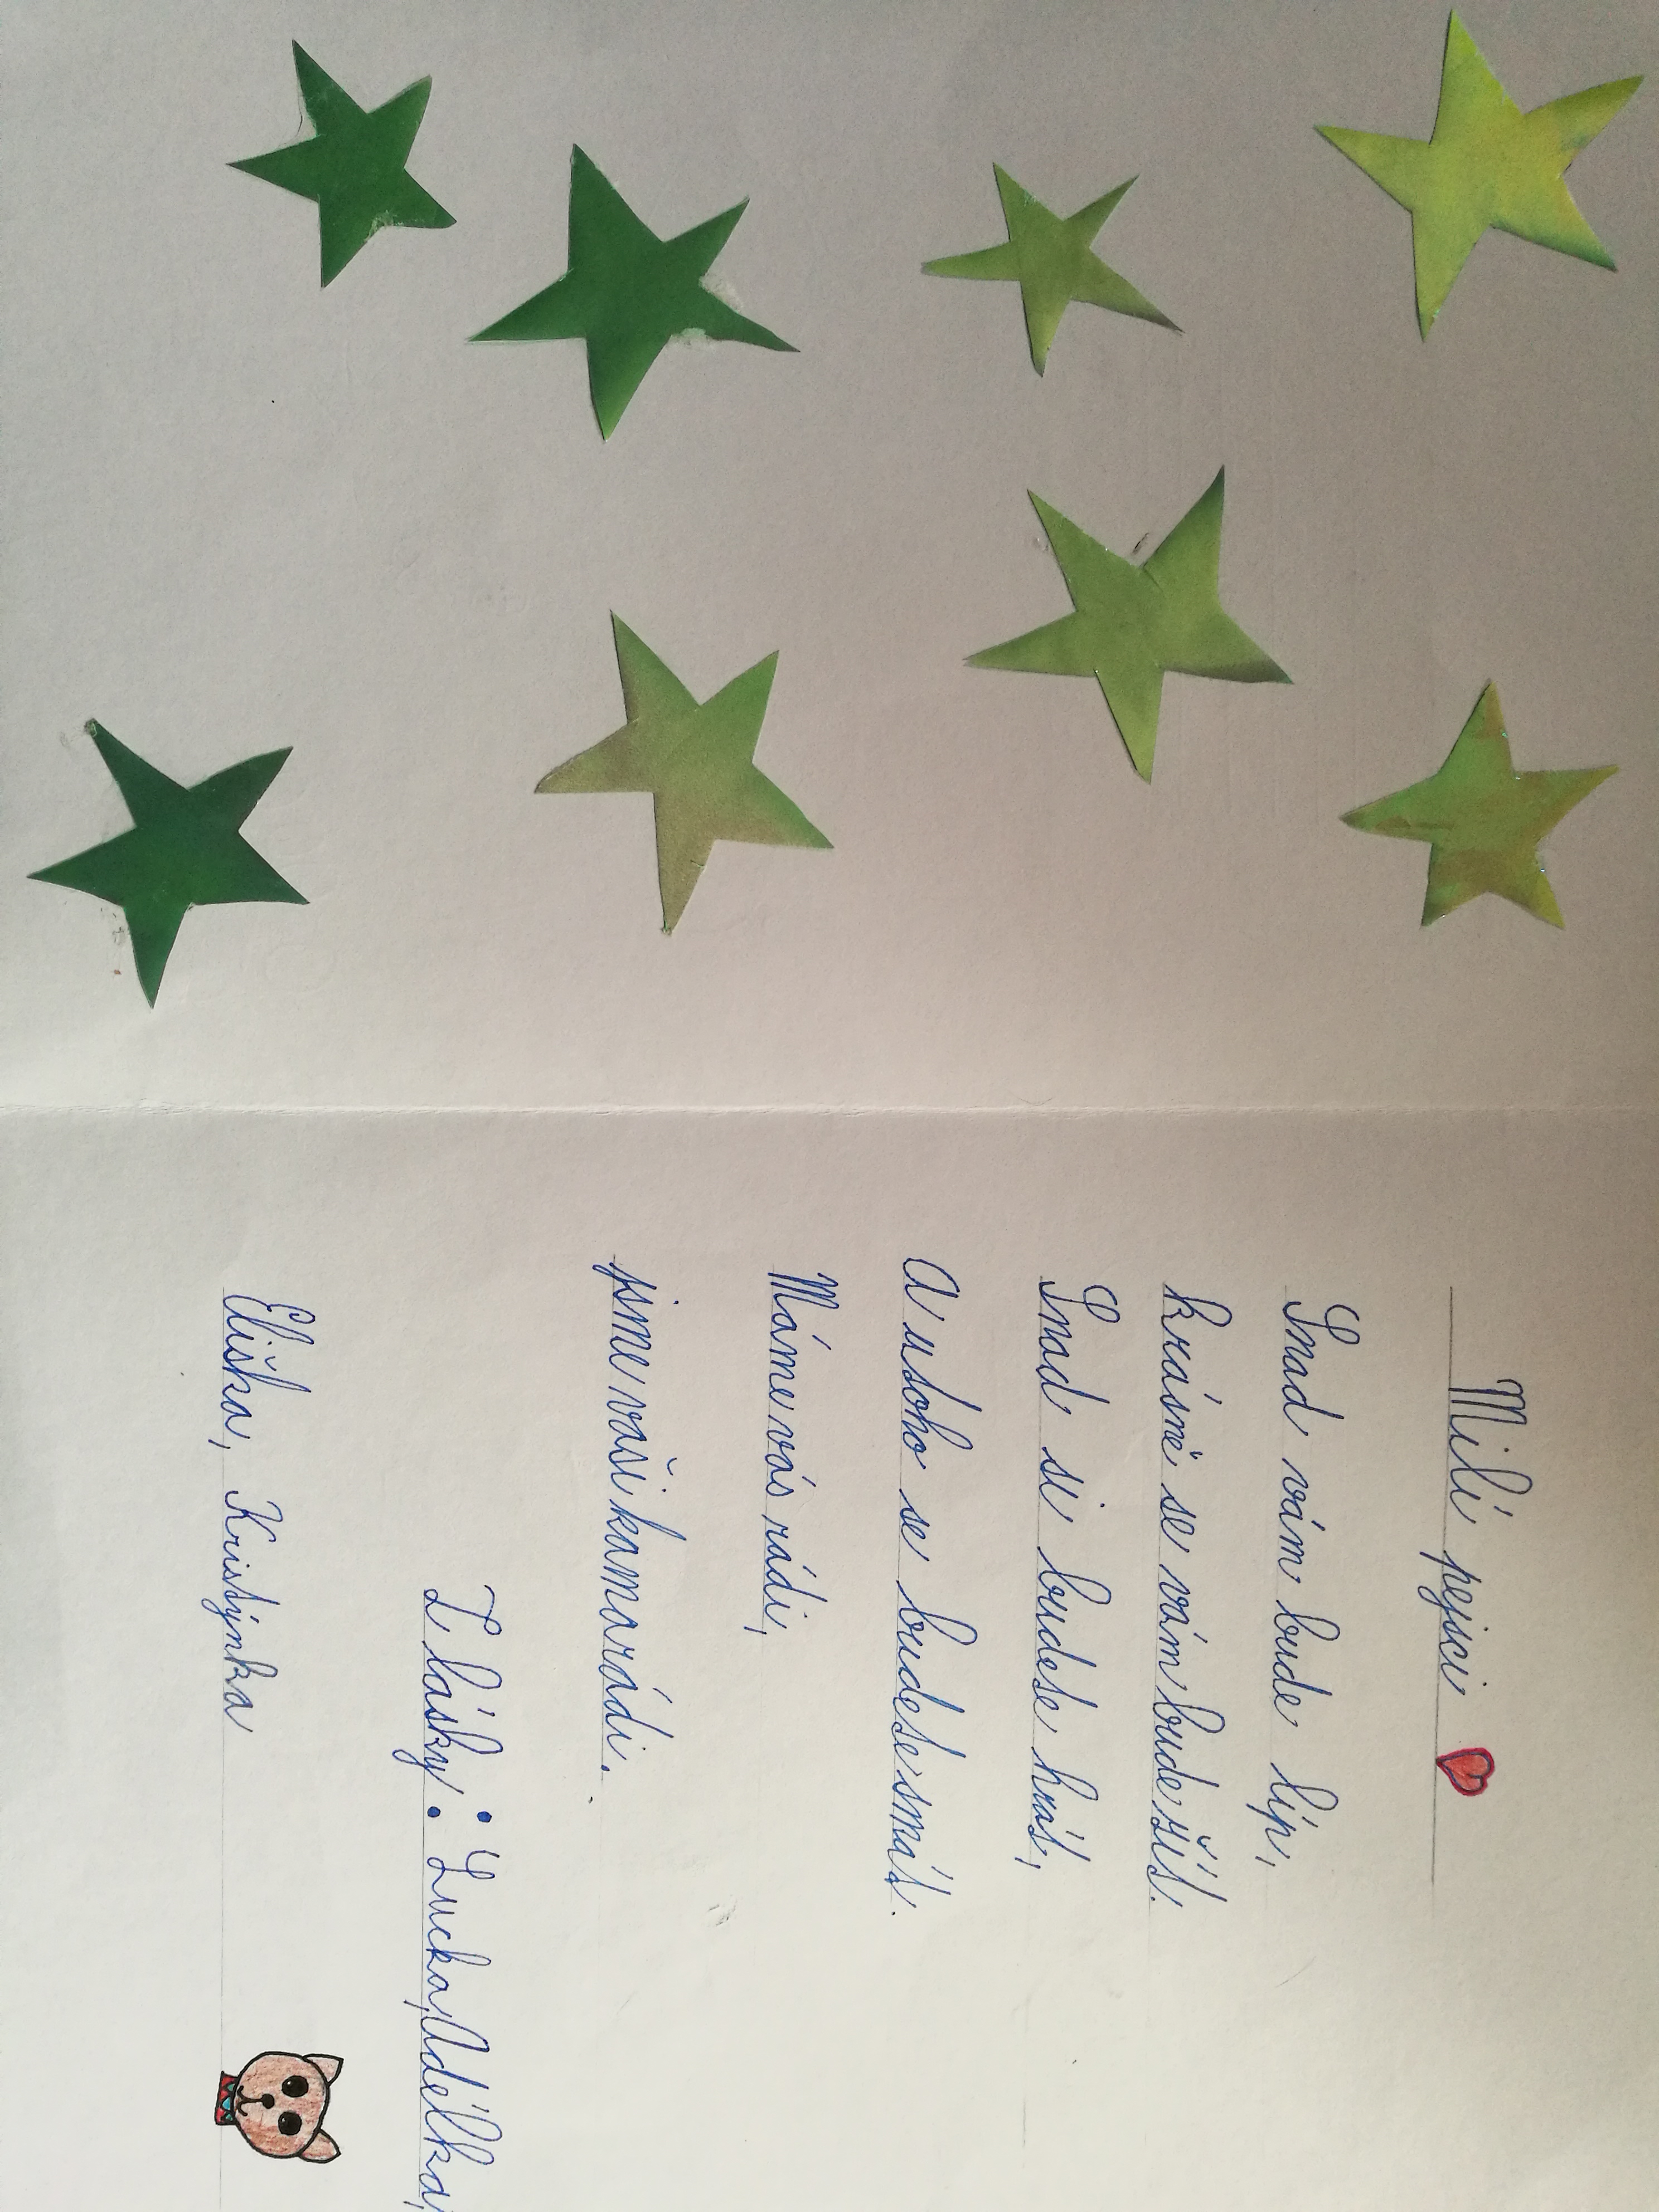 Milí pejsci
Snad vám bude líp,
krásně se vám bude žít.
Snad si budete hrát,
A u toho se budete smát.
Máme vás rádi,
jsme vaši kamarádi.
Z lásky: Lucka, Adélka,
Eliška, Kristýnka